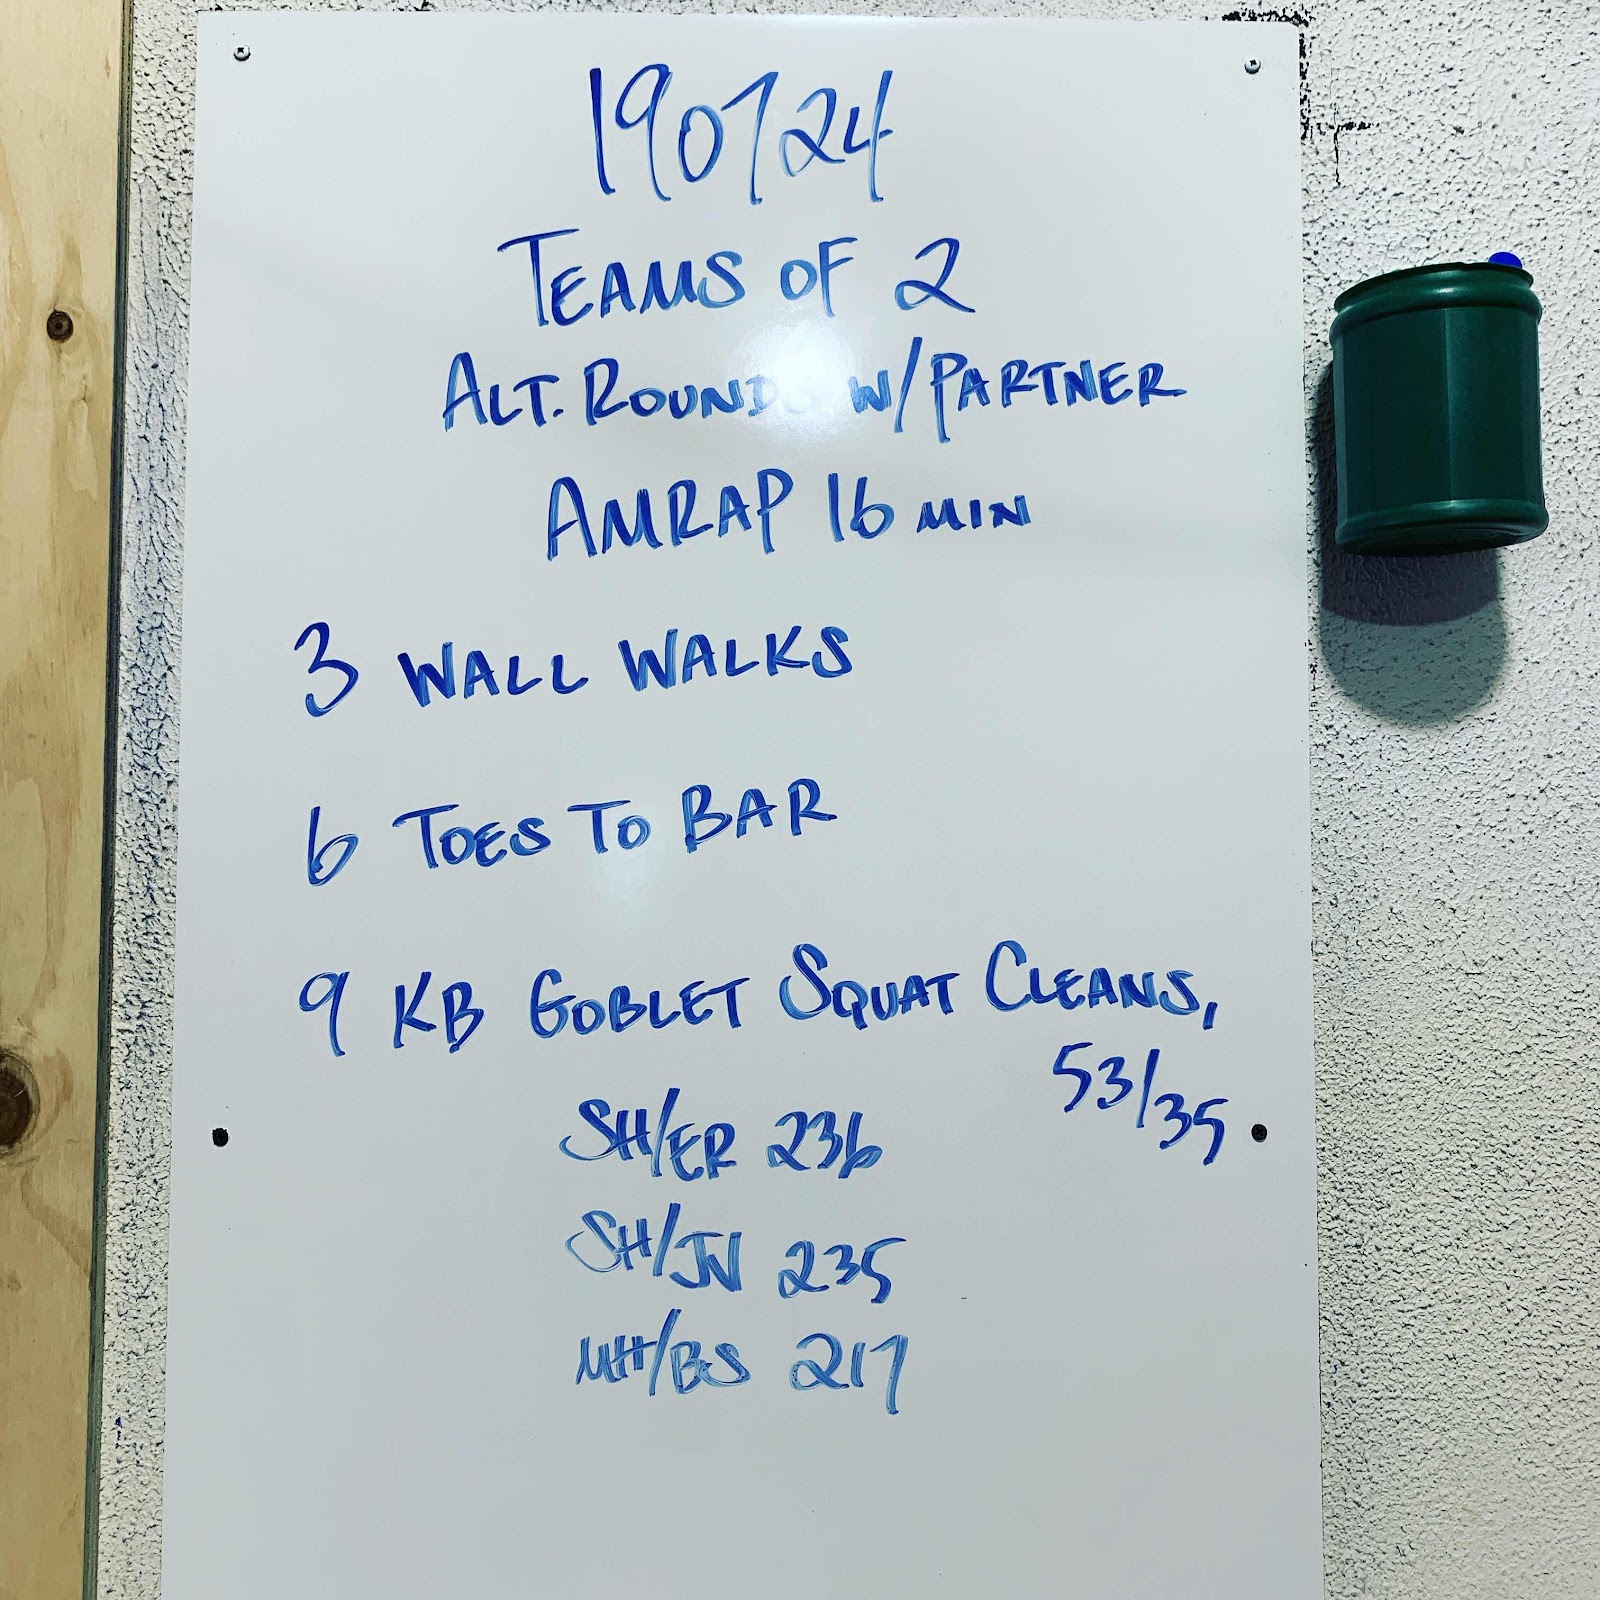 190724
TEAMS OF 2
ALT. ROUNDS W/PARTNER
AMRAP 16 MIN
3 WALL WALKS
6 TOES TO BAR
9 KB GOBLET SQUAT CLEANS,
53/35
SH/ER 236
SH/JV 235
MH/BS 217